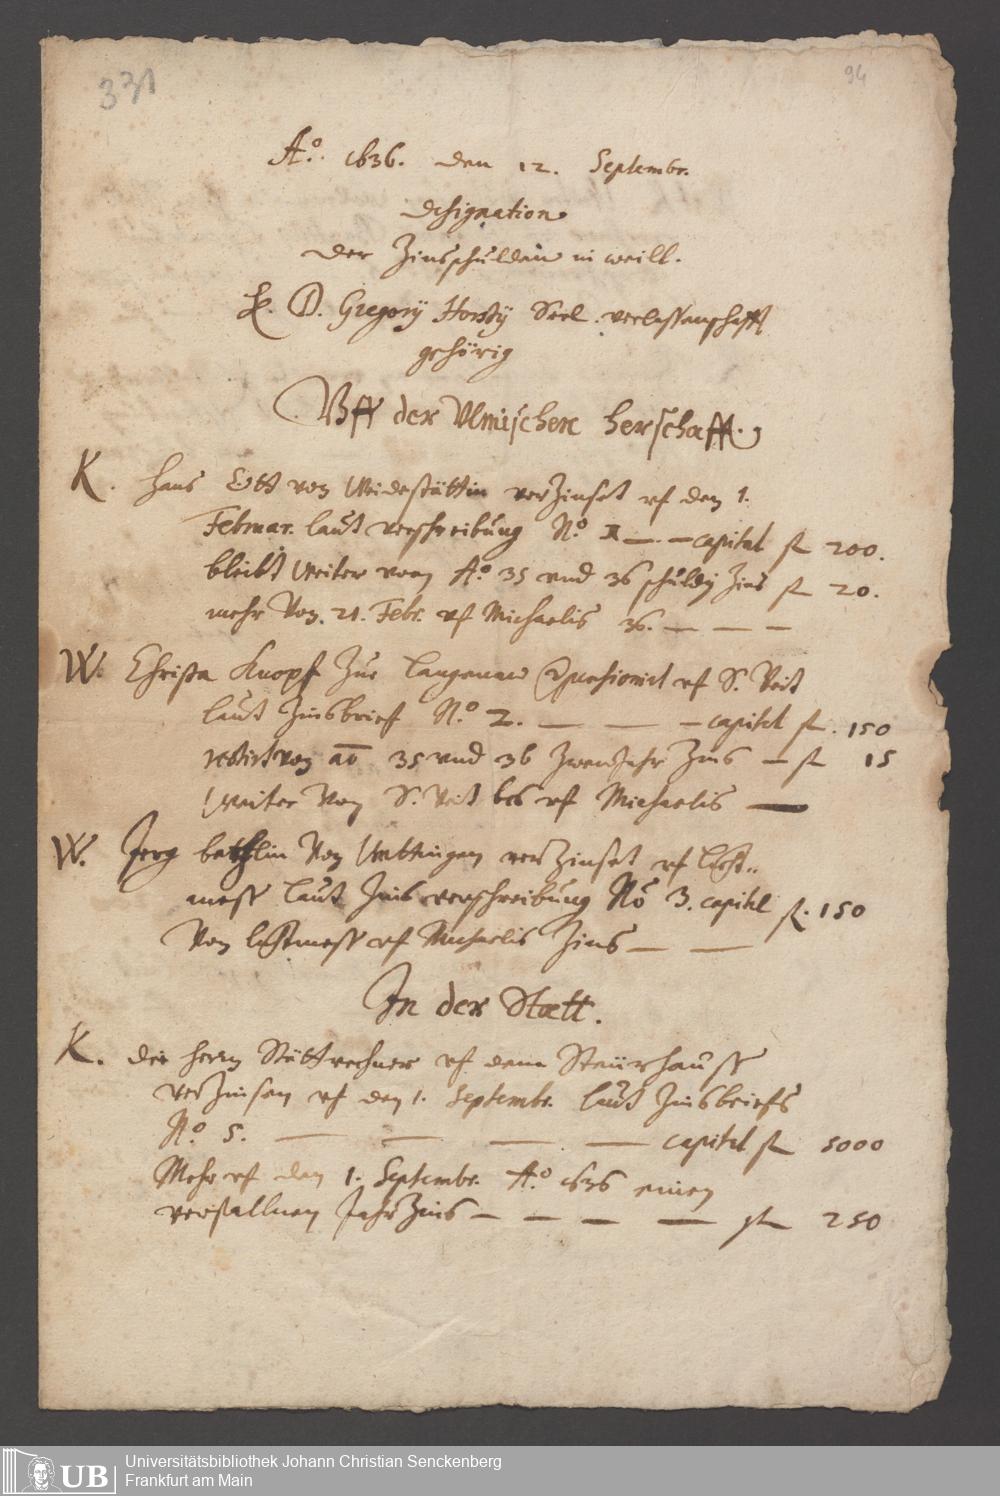 331
94
Aº. 1636. den 12. Septembr.
designation
der Zinsschulden in weill.
H. D. Gregorÿ Horstÿ Seel. verlassenschafft
gehörig
Vff der Vlmischen herschafft.
K. Hans Ott von Weidestättin verzinset vf den 1.
Februar. laut verschreibung Nº. 1 — — capital fl 200.
bleibt weiter vom Aº. 35 vnd 36 schuldig Zins fl 20.
mehr Von 21. Febr. vf Michaelis 36. — — —
W. Christa Knopf Zue Langenaw vf S. Veit
laut Zinsbrieff Nº. 2. — — — capital fl. 150
restirt von aō 35 vnd 36 zwen Jahr Zins — fl 15
Weiter Von S. Veit bis vf Michaelis —
W. Jerg von verzinset vf liecht..
mess laut Zinsverschreibung No 3. capital fl. 150
Von liechtmess vf Michaelis Zins — —
In der Statt.
K. die Herrn Stättrechner vf dem Steurhauss
verzinsen vf den 1. Septembr. laut Zinsbriefs
Nº. 5. — — — — capital fl 5000
Mehr vf den 1. Septembr. Aº. 1636 einen
verfallnen Jahr Zins — — — — fl 250
UB
Universitätsbibliothek Johann Christian Senckenberg
Frankfurt am Main